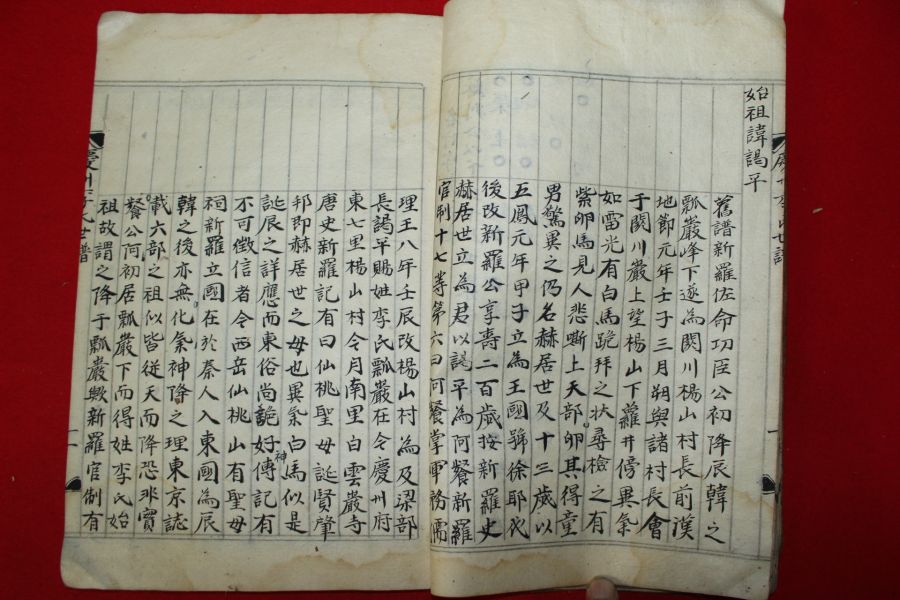 始祖諱謁平
舊譜新羅佐命功臣公初降辰韓之
瓢巖峰下遂為閼川楊山村長前漢
地節元年壬子三月朔與諸村長會
于閼川巖上望楊山下蘿井傍異氣
如雷光有白馬跪拜之状尋檢之有
紫卵馬見人悲嘶上天部卵其得童
男驚異之仍名赫居世及十三歲以
五鳳元年甲子立為王國號徐耶伐
後改新羅公享壽二百歲按新羅史
赫居世立為君以謁平為阿餐新羅
官制十七等第六曰阿餐掌軍務儒
理王八年壬辰改楊山村為及梁部
長謁平賜姓李氏瓢巖在今慶州府
東七里楊山村今月南里白雲巖寺
唐史新羅記有曰仙桃聖母誕賢肇
邦即赫居世之母也異氣白馬似是
誕辰之詳應而東俗尚詭好神傳記有
不可徵信者令西岳仙桃山有聖母
祠新羅立國在於秦人入東國為辰
韓之後亦無化氣神降之理東京誌
載六部之祖似皆従天而降恐非實
餐公何初居瓢巖下而得姓李氏始
祖故謂之降于瓢巖歟新羅官制有
慶州李氏世譜
二